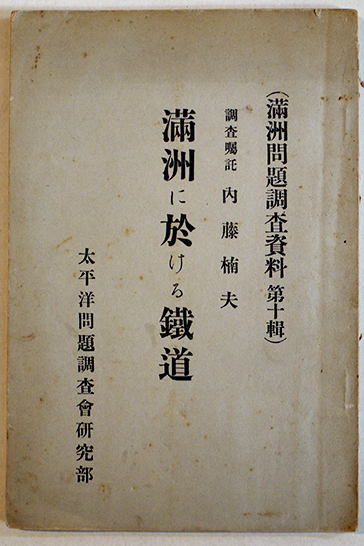 (滿洲問題調査資料 第十輯)
調査囑託 內藤楠夫
滿洲に於ける鐵道
太平洋問題調査會硏究部